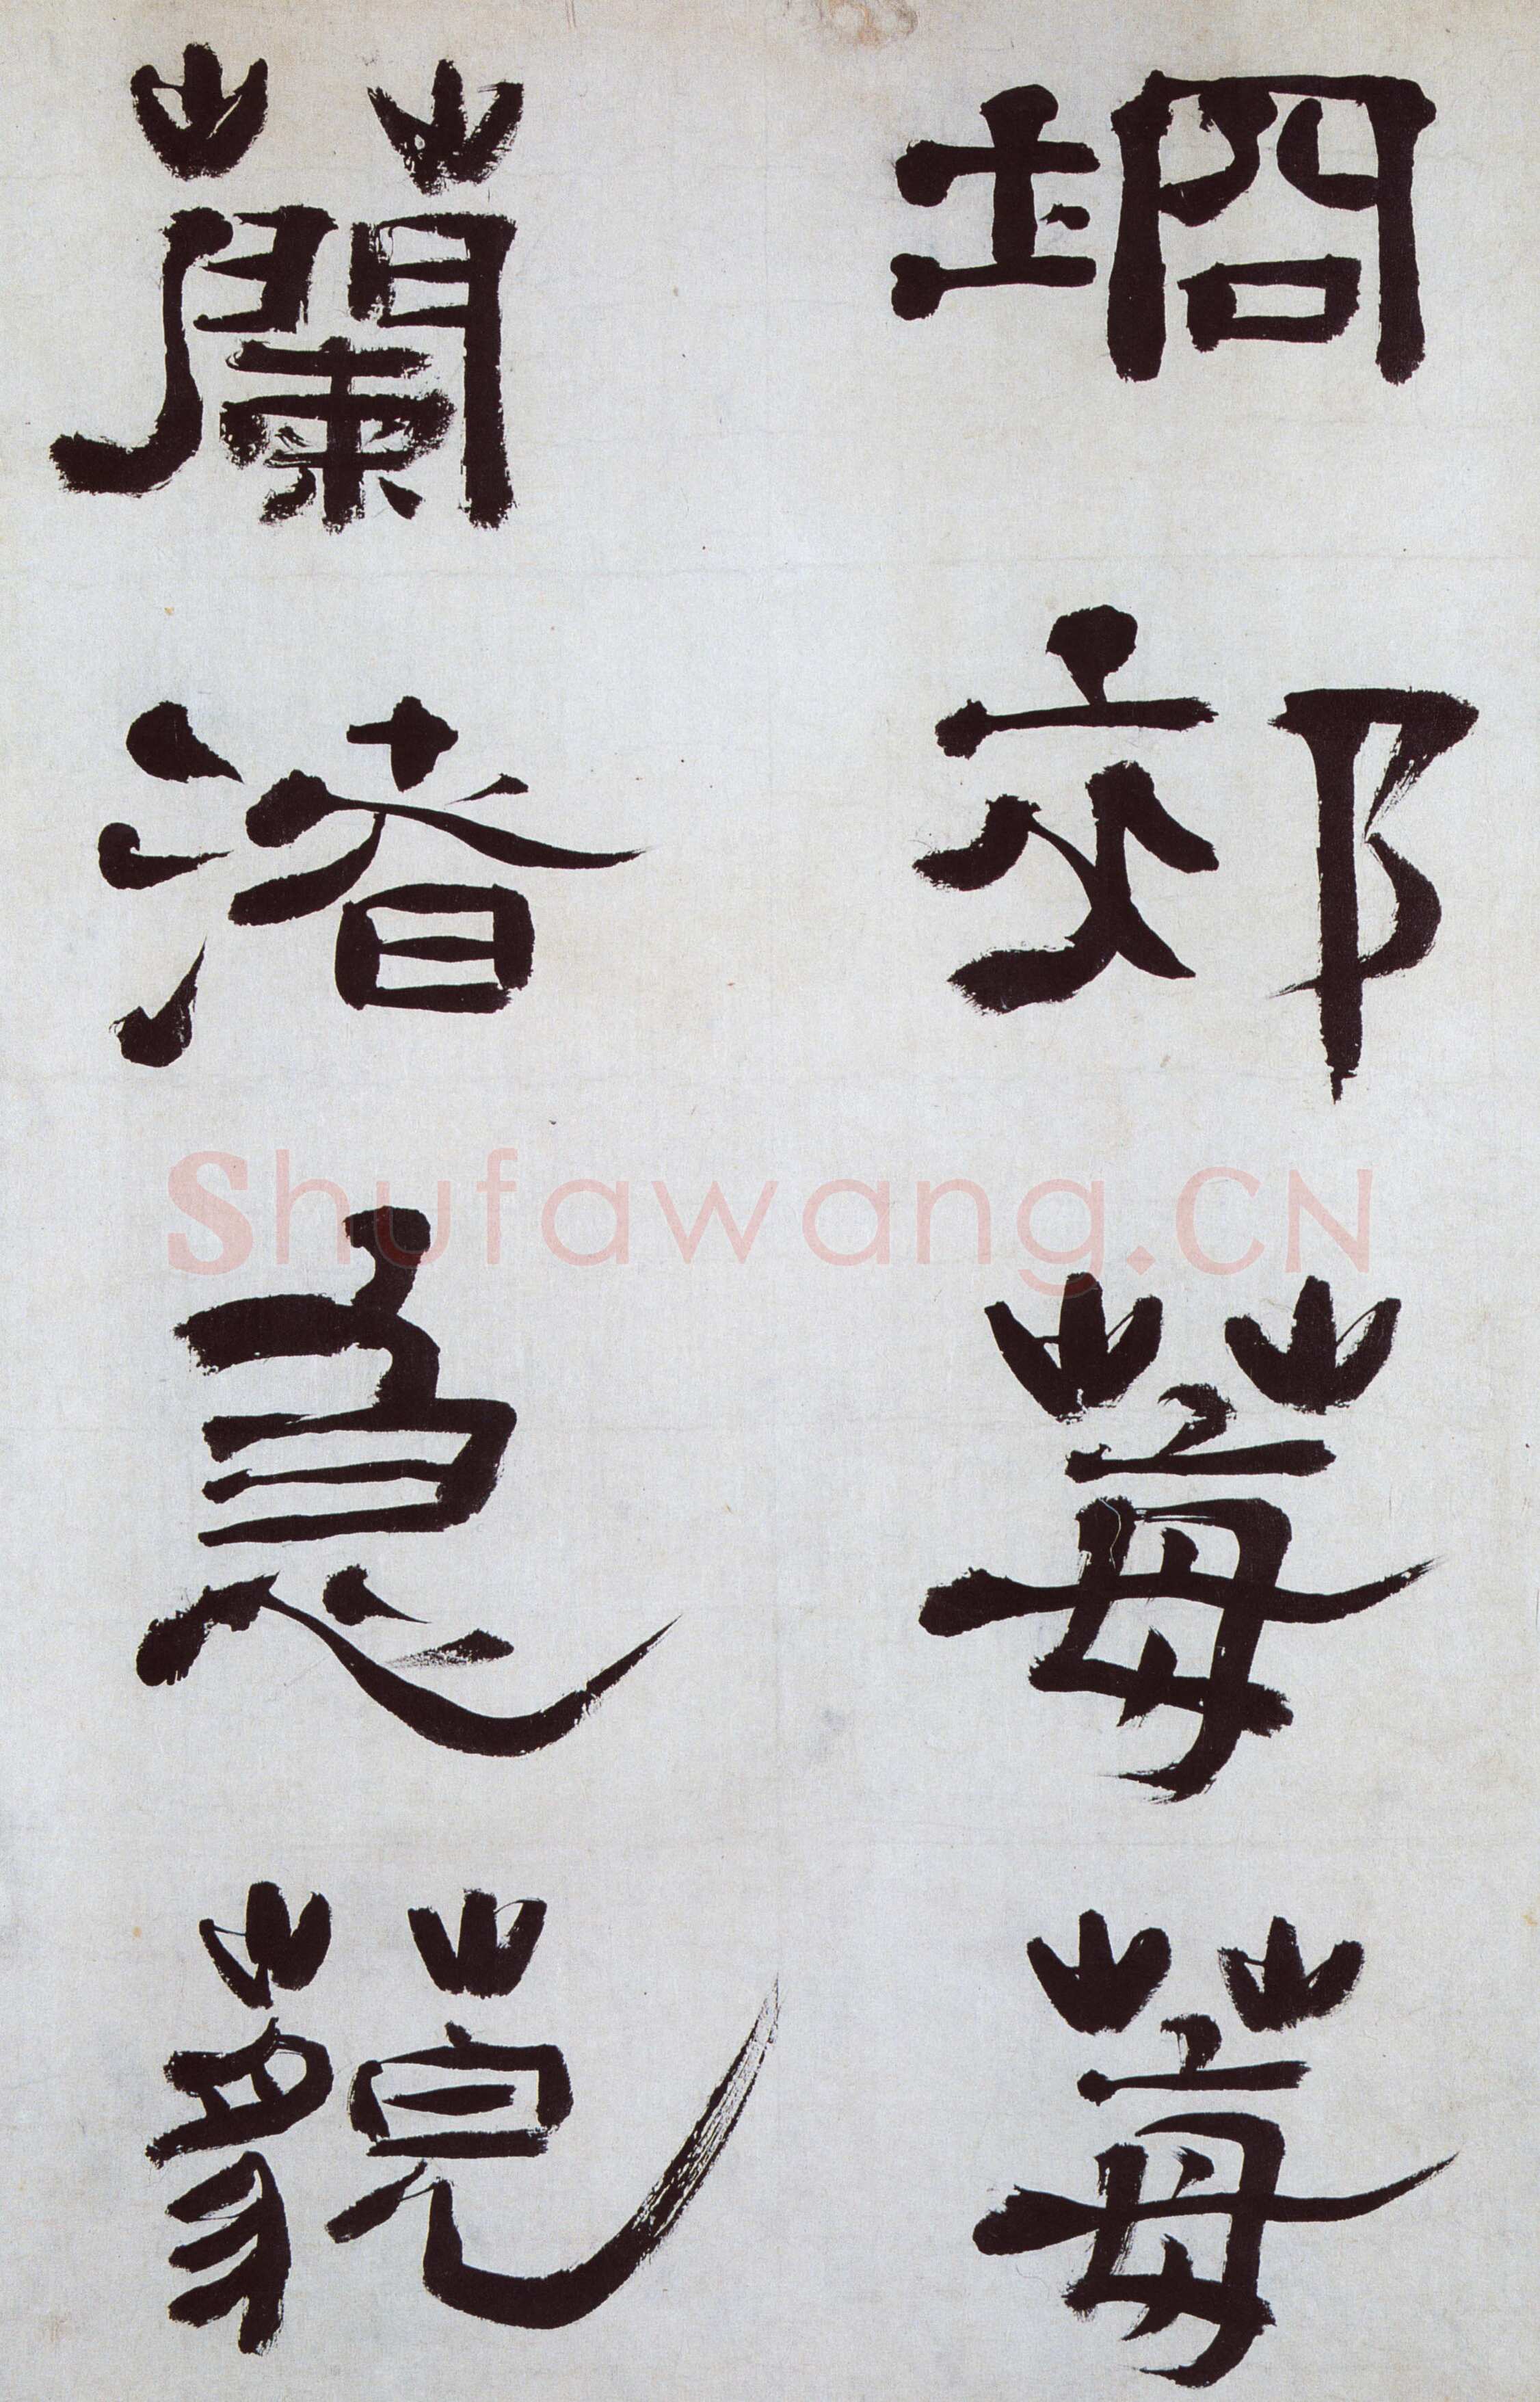 埛郊莓莓
蘭渚急藐
Shufawang.CN